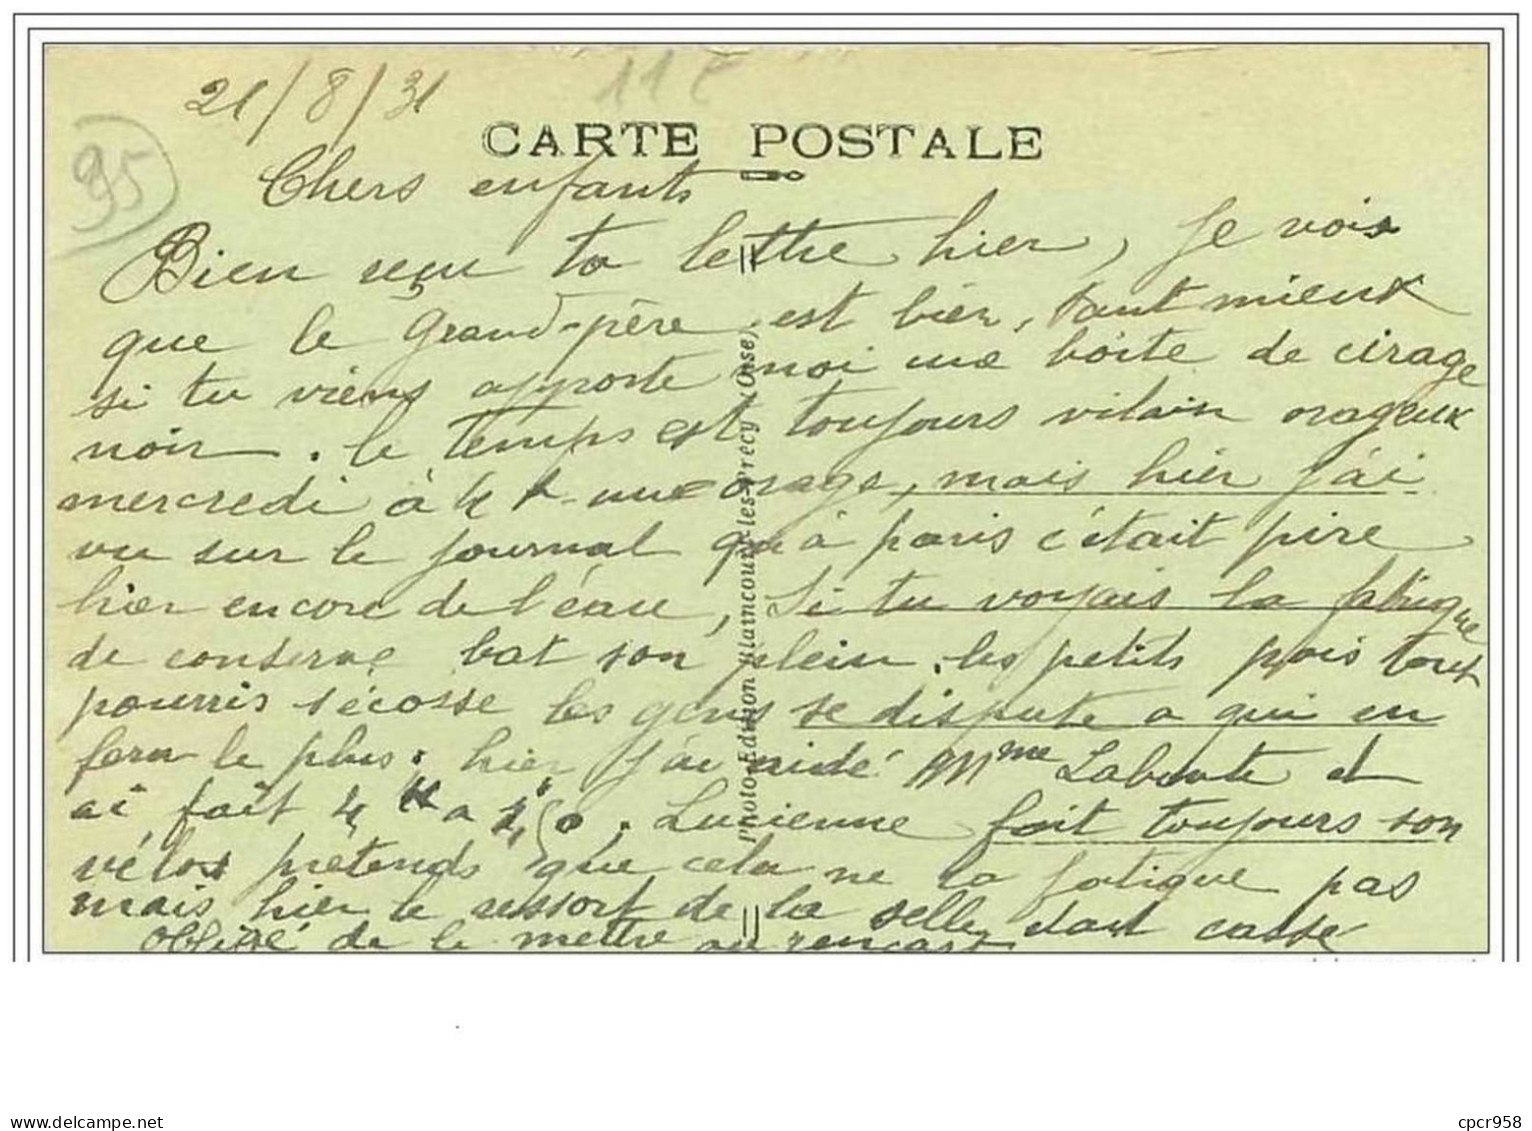 21/8/31
11 E
95
CARTE POSTALE
Chers enfants
Bien reçu ta lettre hier, je vois
que le Grand-père est bien, tant mieux
si tu viens apporte moi une boite de cirage
noir. le temps est toujours vilain orageux
mercredi à 4 h une orage, mais hier j'ai
vu sur le journal qu'à paris c'était pire
hier encore de l'eau, si tu voyais la fabrique
de conserve bat son plein. les petits pois tout
pourris s'écosse les gens se dispute a qui en
fera le plus. hier j'ai aidé Mme Laboute et
ai fait 4 a . Lucienne fait toujours son
vélos pretends que cela ne la fatigue pas
mais hier le ressort de la selle etait cassé
obligé de le mettre au rencart
Photo-Edition Blaincourt-les-Précy (Oise)
cpcr958